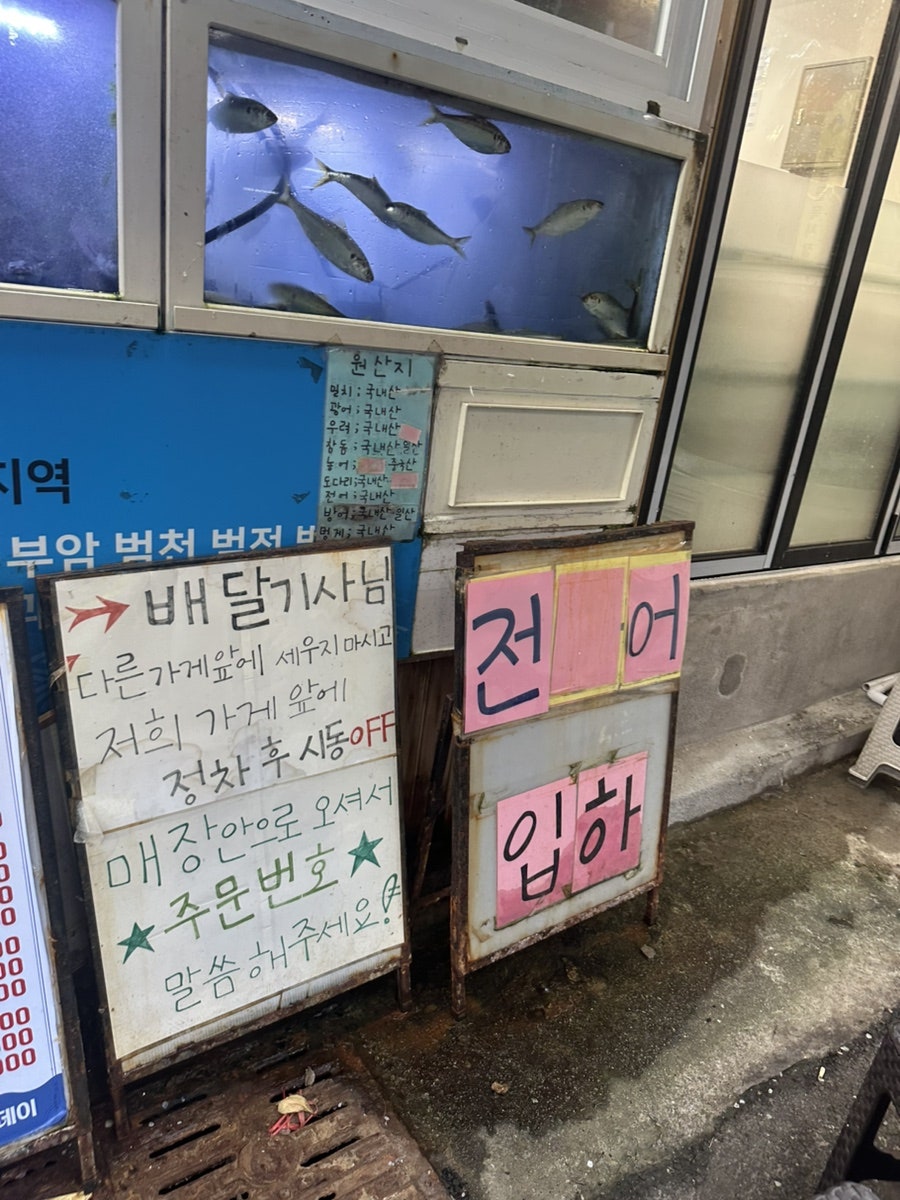 원산지
멸치;국내산
광어;국내산
우럭;국내산
참돔;국내산 일산
농어; 중국산
도다리;국내산
전어;국내산
방어;국내산 일산
멍게;국내산
지역
부암 범천 범전
배달기사님
다른가게앞에 세우지마시고
저희 가게 앞에
정차 후 시동OFF
매장안으로 오셔서
★주문번호★
말씀해주세요!
전 어
입하
00
00
00
00
00
00
00
00
000
데이